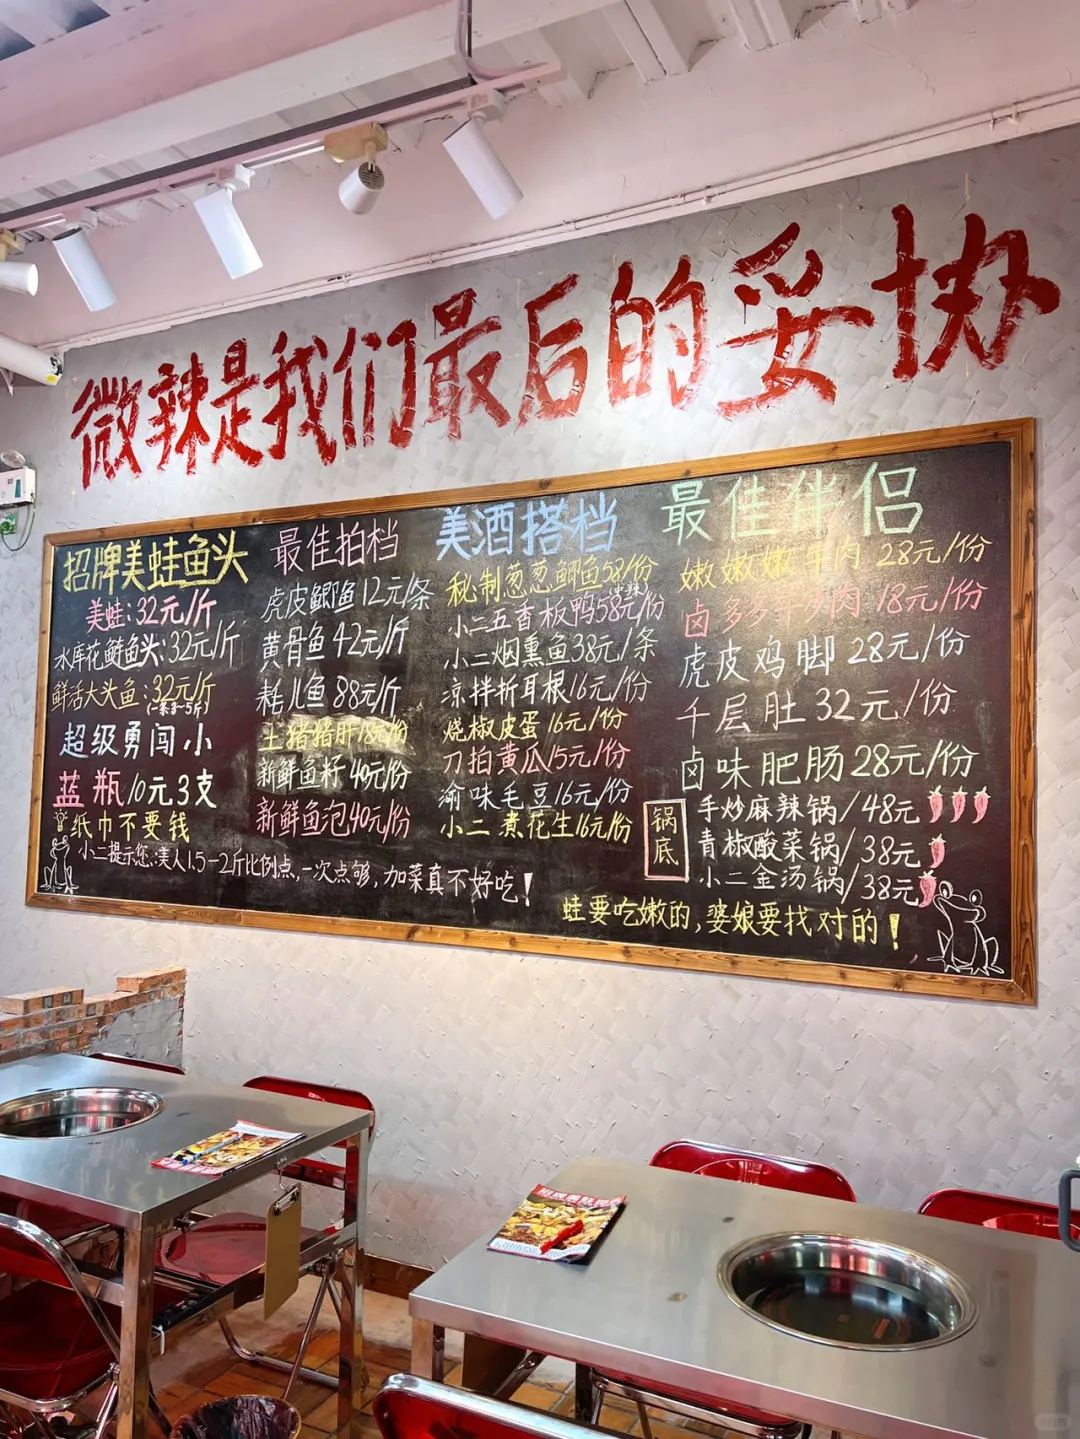 微辣是我们最后的妥协
招牌美蛙鱼头
美蛙:32元/斤
水库花鲢鱼头:32元/斤
鲜活大头鱼:32元/斤
(一条3~5斤)
超级勇闯小
蓝瓶10元3支
纸巾不要钱
最佳拍档
虎皮鲫鱼12元/条
黄骨鱼42元/斤
耗儿鱼88元/斤
土猪猪肝18元/份
新鲜鱼籽40元/份
新鲜鱼泡40元/份
美酒搭档
秘制葱葱鲫鱼58/份
小二五香板鸭58元/份
小二烟熏鱼38元/条
凉拌折耳根16元/份
烧椒皮蛋16元/份
刀拍黄瓜15元/份
渝味毛豆16元/份
小二煮花生16元/份
最佳伴侣
嫩嫩嫩牛肉28元/份
卤多多 肉18元/份
虎皮鸡脚28元/份
千层肚32元/份
卤味肥肠28元/份
锅底
手炒麻辣锅/48元
青椒酸菜锅/38元
小二金汤锅/38元
小二提示您:美人1.5-2斤比例点,一次点够,加菜真不好吃!
蛙要吃嫩的,婆娘要找对的!